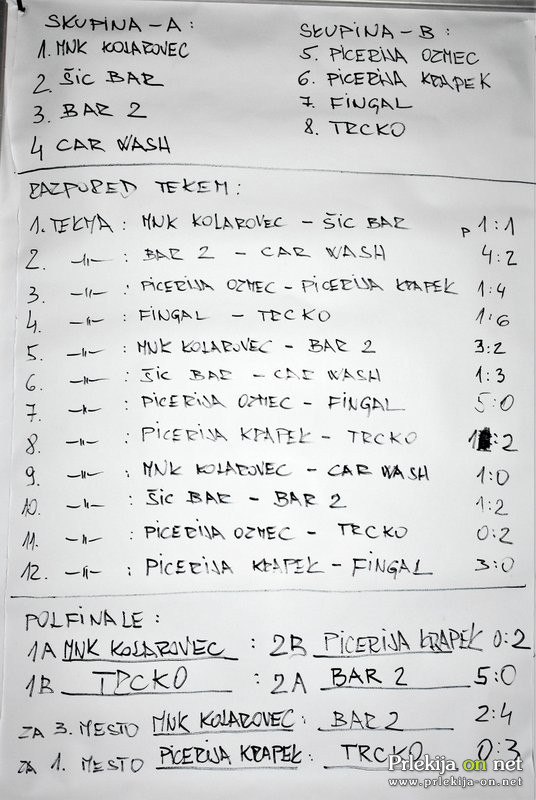 SKUPINA-A:
1. MNK KOLAROVEC
2. ŠIC BAR
3. BAR 2
4 CAR WASH
SKUPINA-B:
5. PICERIJA OZMEC
6. PICERIJA KRAPEK
7. FINGAL
8. TRCKO
RAZPORED TEKEM:
1. TEKMA: MNK KOLAROVEC - ŠIC BAR P 1:1
2. -"- : BAR 2 - CAR WASH 4:2
3. -"- : PICERIJA OZMEC - PICERIJA KRAPEK 1:4
4. -"- : FINGAL - TRCKO 1:6
5. -"- : MNK KOLAROVEC - BAR 2 3:2
6. -"- : ŠIC BAR - CAR WASH 1:3
7. -"- : PICERIJA OZMEC - FINGAL 5:0
8. -"- : PICERIJA KRAPEK - TRCKO 1:2
9. -"- : MNK KOLAROVEC - CAR WASH 1:0
10. -"- : ŠIC BAR - BAR 2 1:2
11. -"- : PICERIJA OZMEC - TRCKO 0:2
12. -"- : PICERIJA KRAPEK - FINGAL 3:0
POLFINALE:
1A MNK KOLAROVEC : 2B PICERIJA KRAPEK 0:2
1B TRCKO : 2A BAR 2 5:0
ZA 3. MESTO MNK KOLAROVEC: BAR 2 2:4
ZA 1. MESTO PICERIJA KRAPEK: TRCKO 0:3
Prlekija on net
www.prlekija-on.net